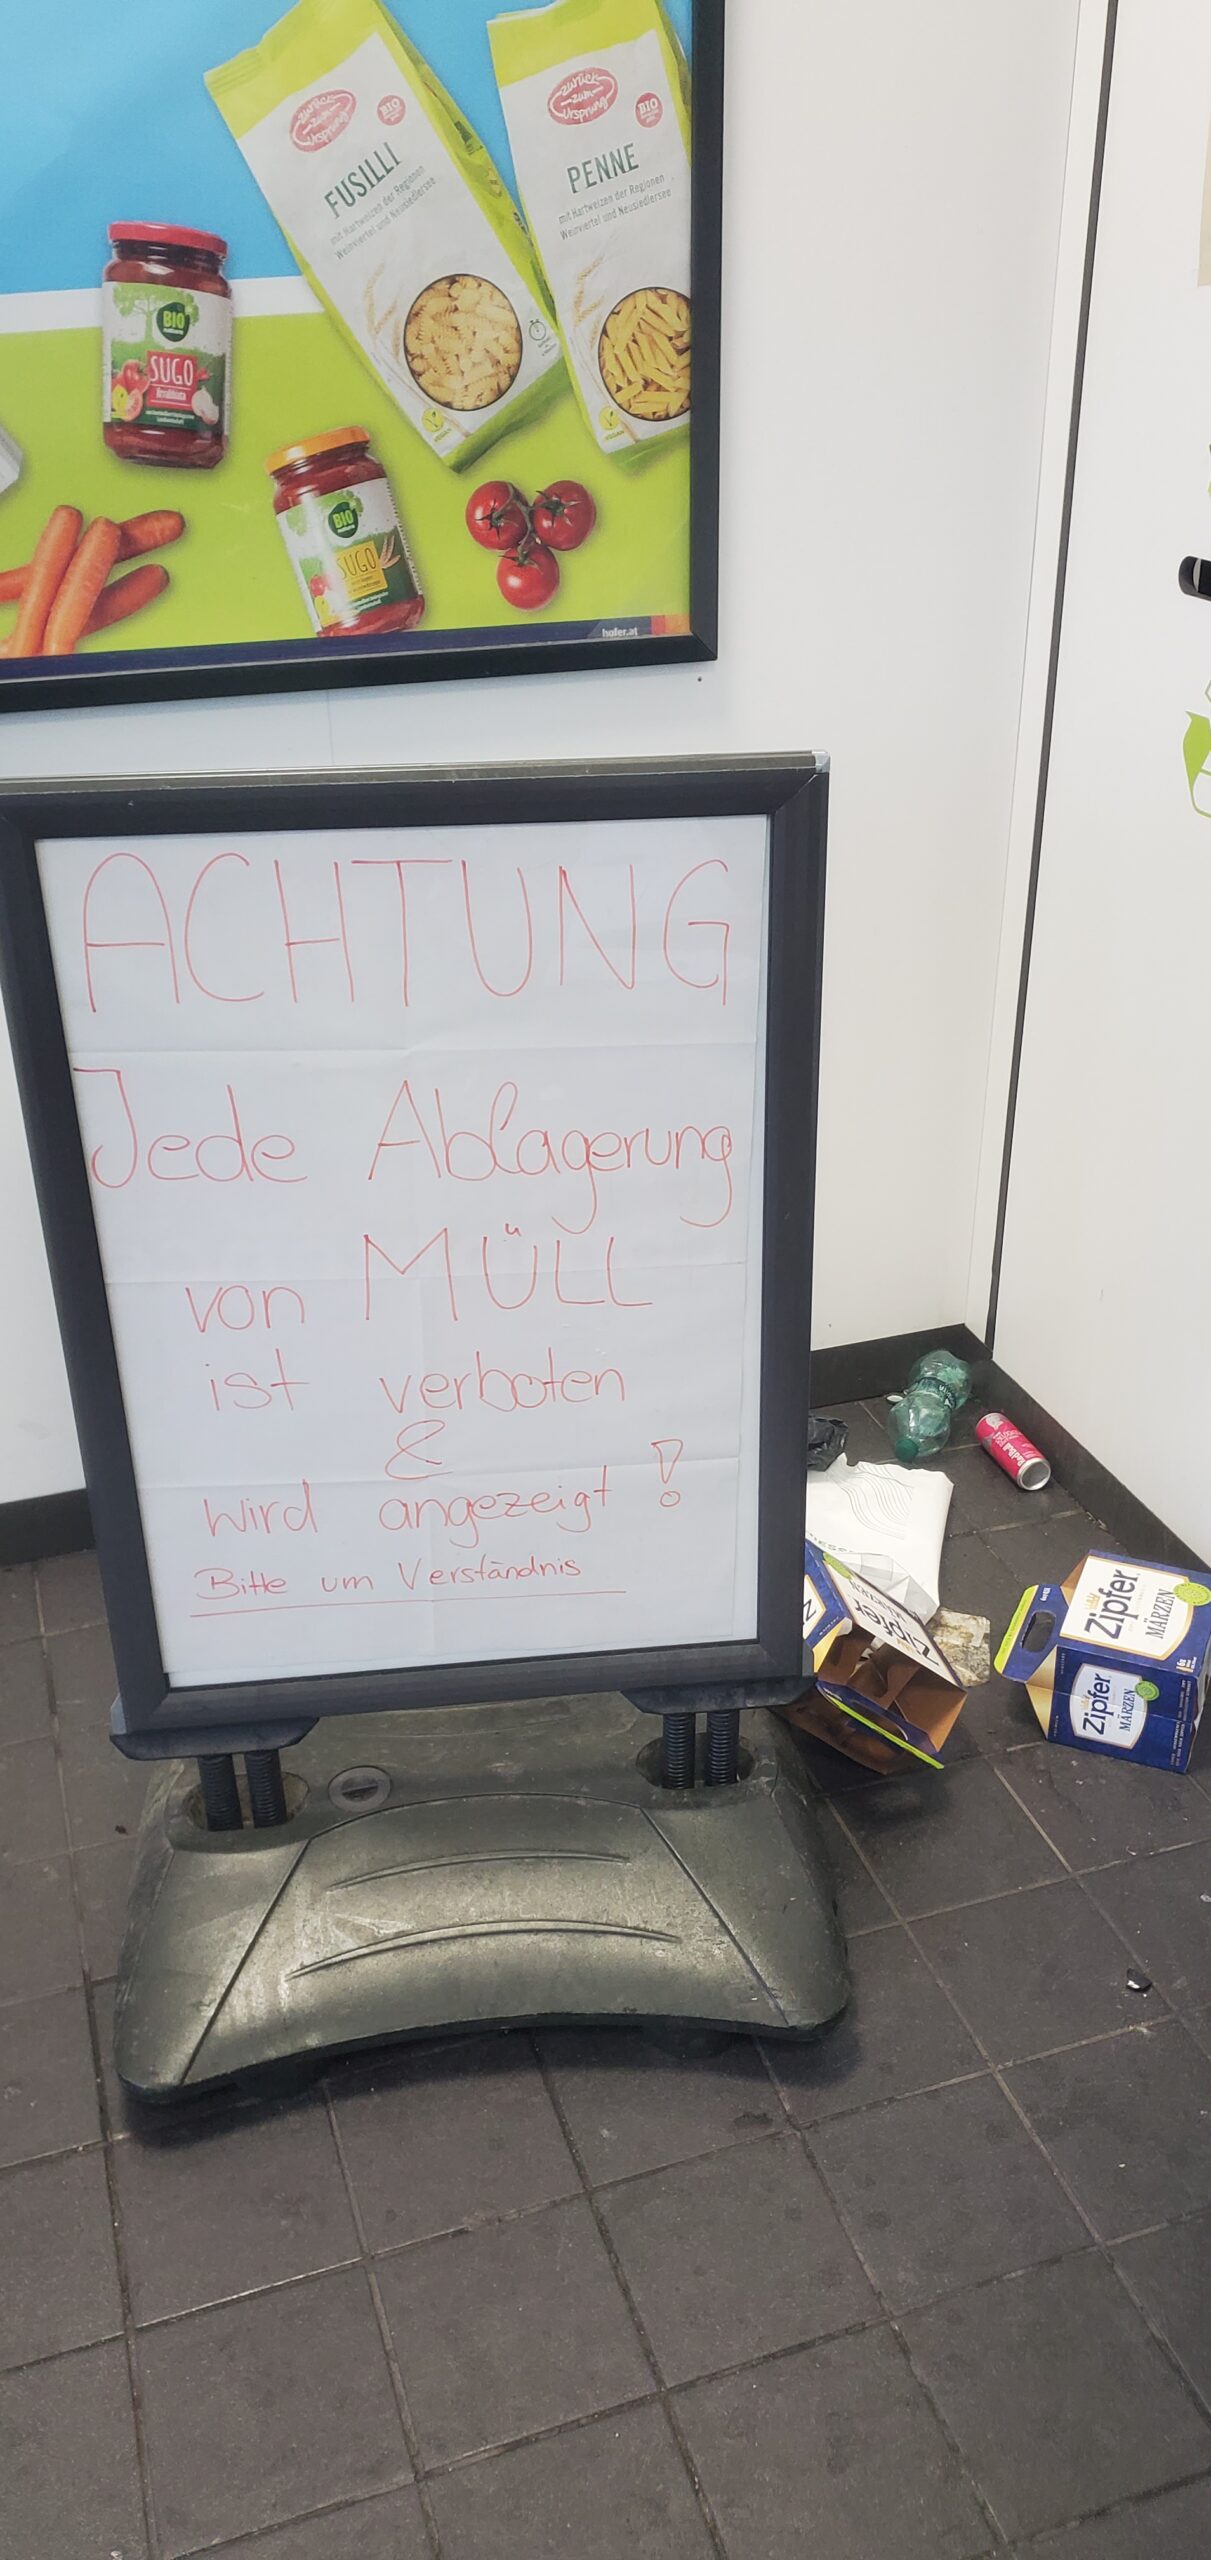 zurück
zum
Ursprung
BIO
FUSILLI
mit Hartweizen der Regionen
Weinviertel und Neusiedlersee
VEGAN
zurück
zum
Ursprung
BIO
PENNE
mit Hartweizen der Regionen
Weinviertel und Neusiedlersee
VEGAN
BIO
SUGO
Arrabbiata
BIO
SUGO
hofer.at
ACHTUNG
Jede Ablagerung
von MÜLL
ist verboten
&
wird angezeigt !
Bitte um Verständnis
Red Bull
Zipfer
MÄRZEN
Zipfer
MÄRZEN
Zipfer
MÄRZEN